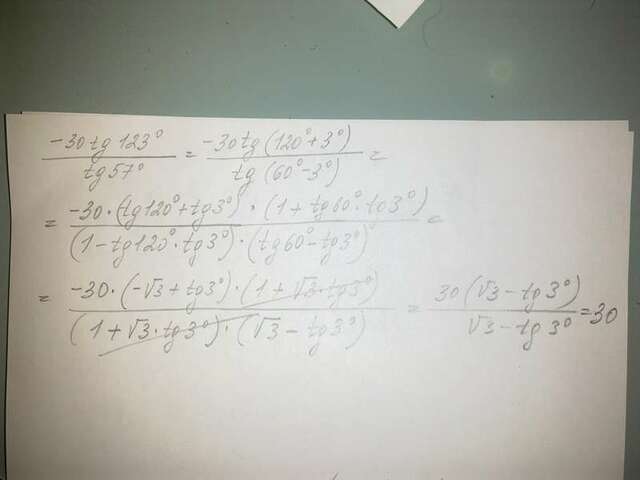 -30tg123°/tg57° = -30tg(120°+3°)/tg(60°-3°) =
= -30·(tg120°+tg3°)·(1+tg60°·tg3°)/(1-tg120°·tg3°)·(tg60°-tg3°) =
= -30·(-√3+tg3°)·(1+√3·tg3°)/(1+√3·tg3°)·(√3-tg3°) = 30(√3-tg3°)/√3-tg3° = 30